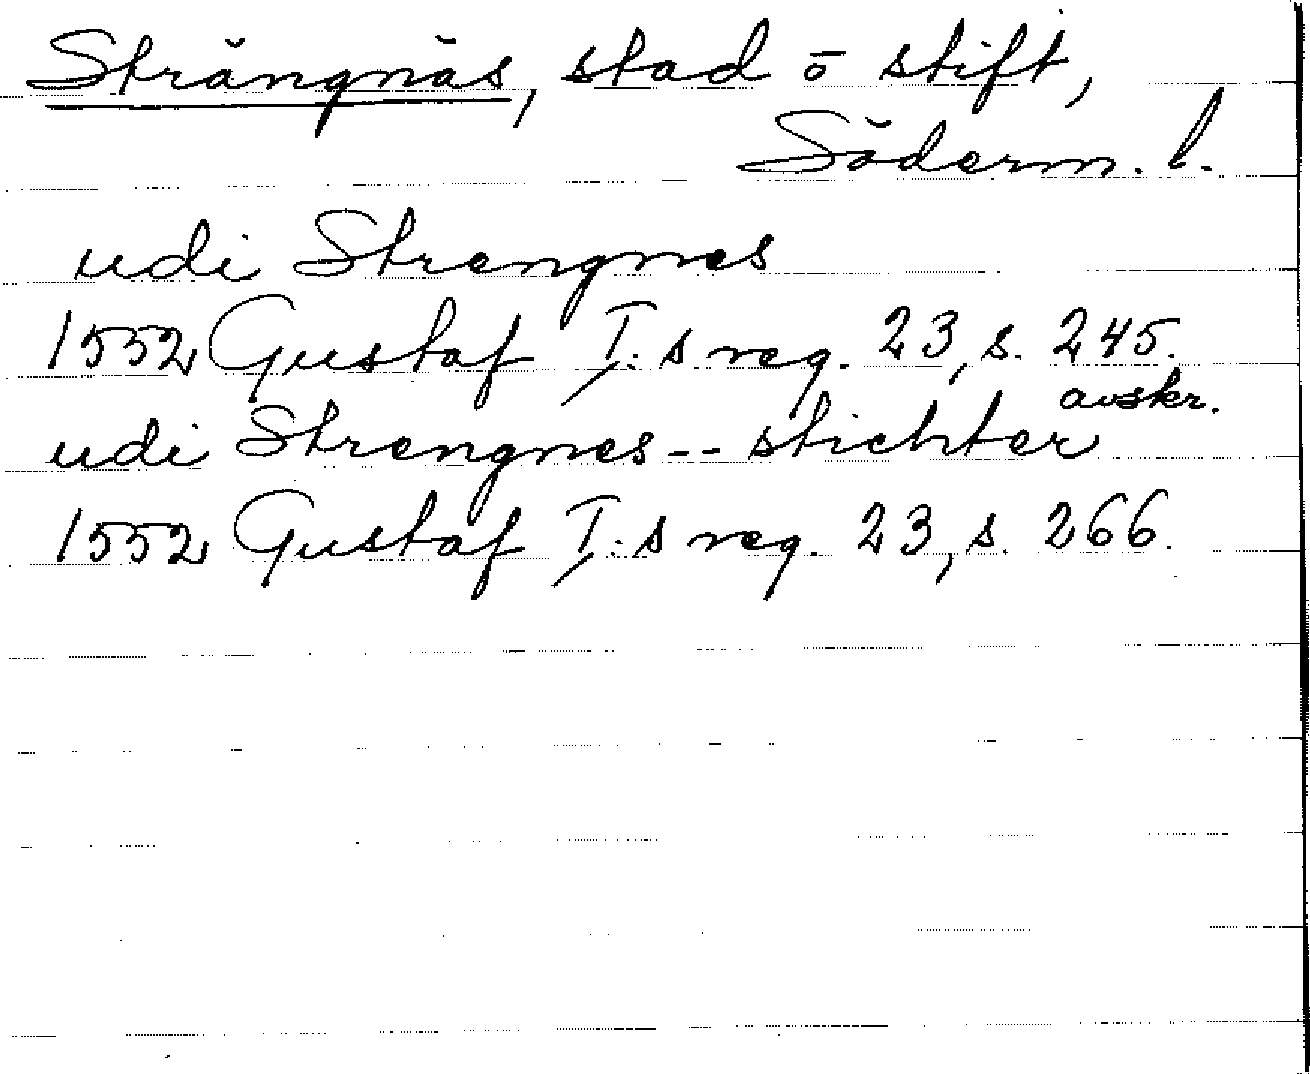 Strängnäs, stad o stift,
Söderm. l.
udi Strengnes
1552 Gustaf I:s reg. 23, s. 245.
avskr.
udi Strengnes -- stichter
1552 Gustaf I:s reg. 23, s. 266.